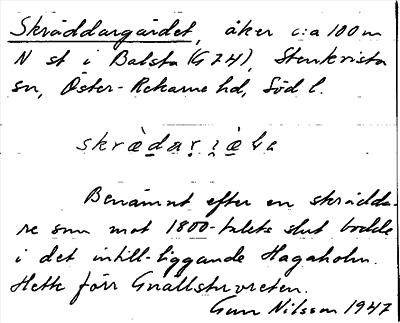 Skräddargärdet, åker c:a 100 m
N st i Balsta (G 74), Stenkvista
sn, Öster-Rekarne hd, Söd l.
Benämnt efter en skrädda-
re som mot 1800-talets slut bodde
i det intill-liggande Hagaholm.
Hette förr Gnällsturreten.
Gun Nilsson 1947